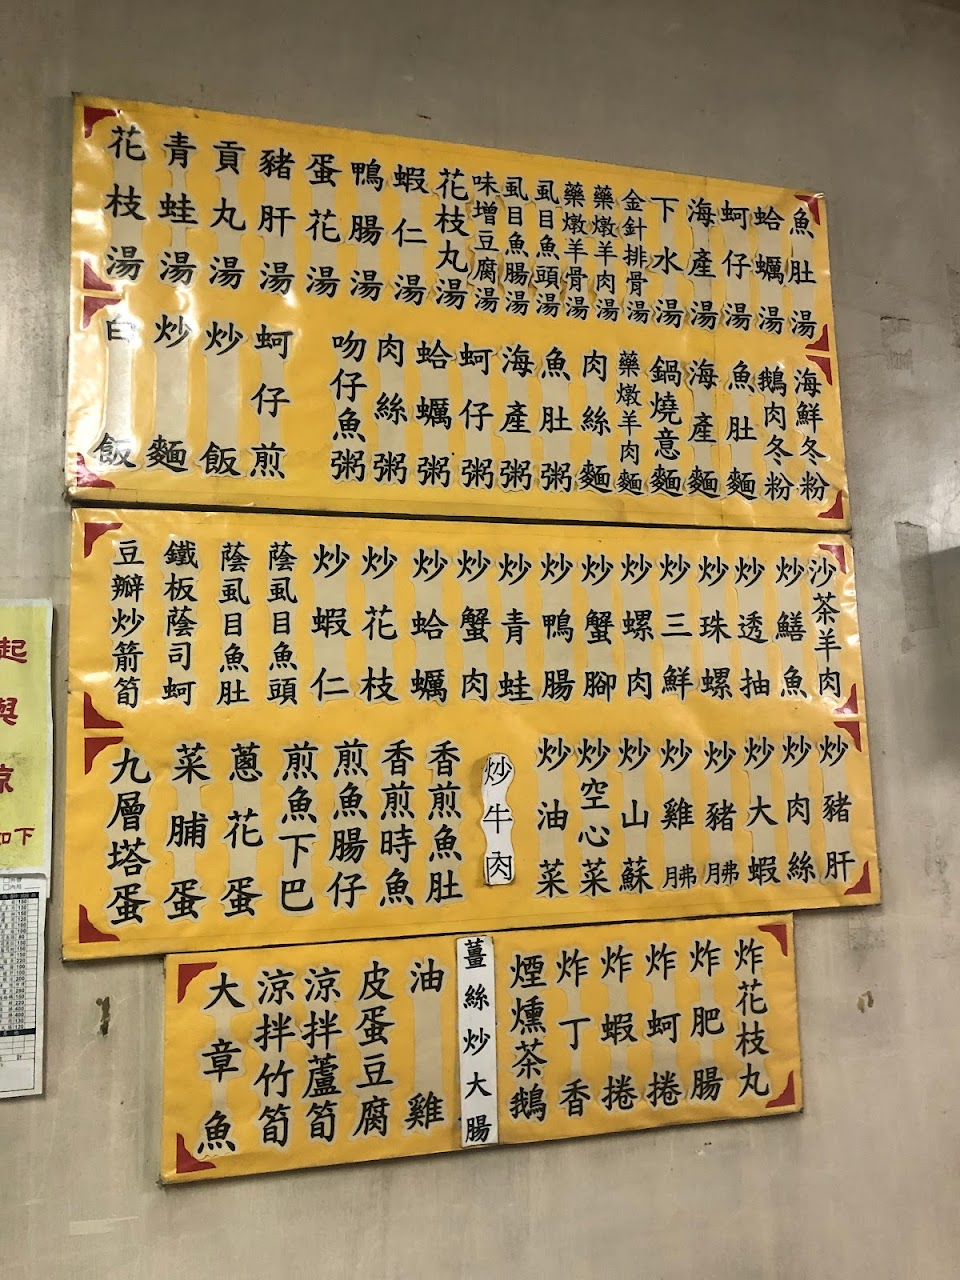 魚肚湯
蛤蠣湯
蚵仔湯
海產湯
下水湯
金針排骨湯
藥燉羊肉湯
藥燉羊骨湯
虱目魚頭湯
虱目魚腸湯
味增豆腐湯
花枝丸湯
蝦仁湯
鴨腸湯
蛋花湯
豬肝湯
貢丸湯
青蛙湯
花枝湯
海鮮冬粉
鵝肉冬粉
魚肚麵
海產麵
鍋燒意麵
藥燉羊肉麵
肉絲麵
魚肚粥
海產粥
蚵仔粥
蛤蠣粥
肉絲粥
吻仔魚粥
蚵仔煎
炒飯
炒麵
白飯
沙茶羊肉
炒鱔魚
炒透抽
炒珠螺
炒三鮮
炒螺肉
炒蟹腳
炒鴨腸
炒青蛙
炒蟹肉
炒蛤蠣
炒花枝
炒蝦仁
蔭虱目魚頭
蔭虱目魚肚
鐵板蔭司蚵
豆瓣炒箭筍
炒豬肝
炒肉絲
炒大蝦
炒豬胇
炒雞胇
炒山蘇
炒空心菜
炒油菜
炒牛肉
香煎魚肚
香煎時魚
煎魚腸仔
煎魚下巴
蔥花蛋
菜脯蛋
九層塔蛋
炸花枝丸
炸肥腸
炸蚵捲
炸蝦捲
炸丁香
煙燻茶鵝
薑絲炒大腸
油雞
皮蛋豆腐
涼拌蘆筍
涼拌竹筍
大章魚
起
與
涼
如下